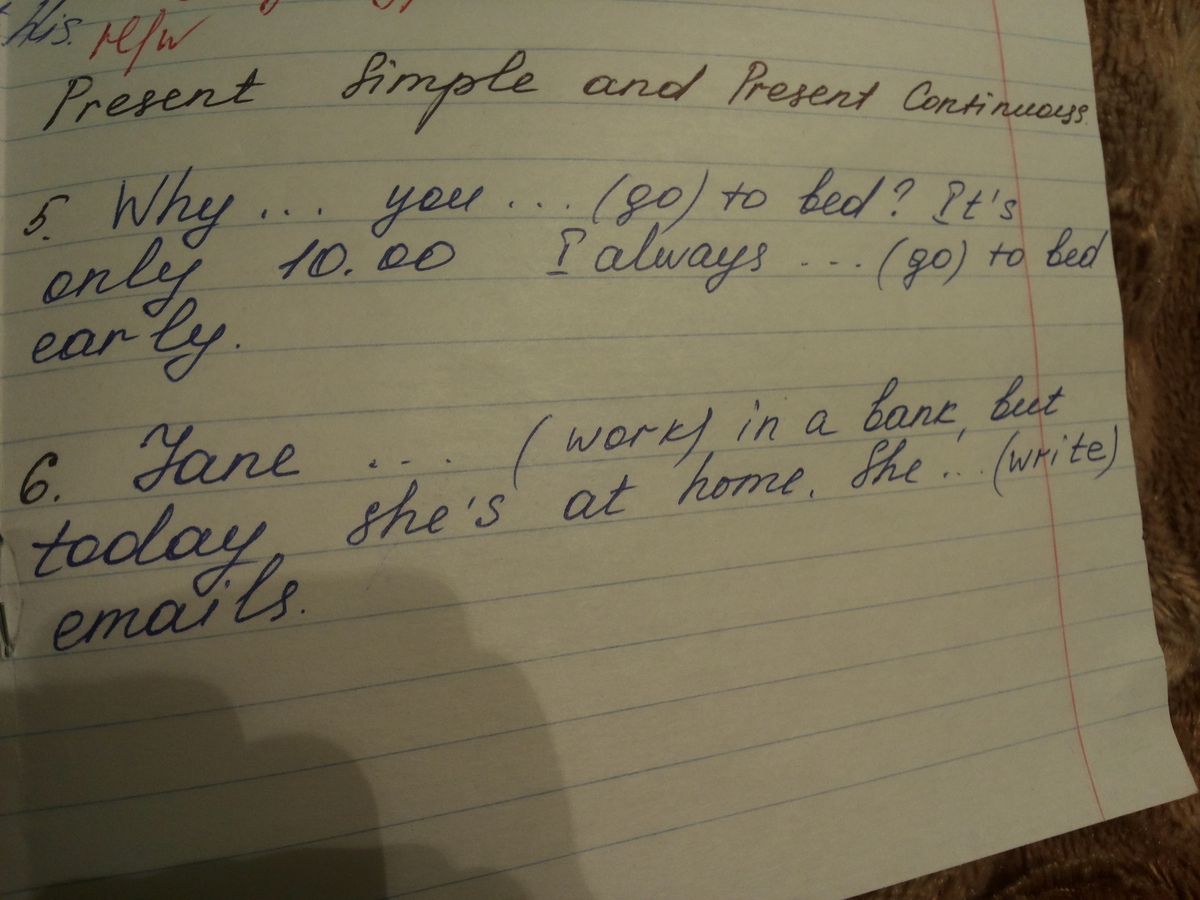 his. H/w
Present Simple and Present Continuous.
5. Why ... you ... (go) to bed? It's
only 10.00 I always ... (go) to bed
early.
6. Jane ... (work) in a bank, but
today she's at home. She ... (write)
emails.